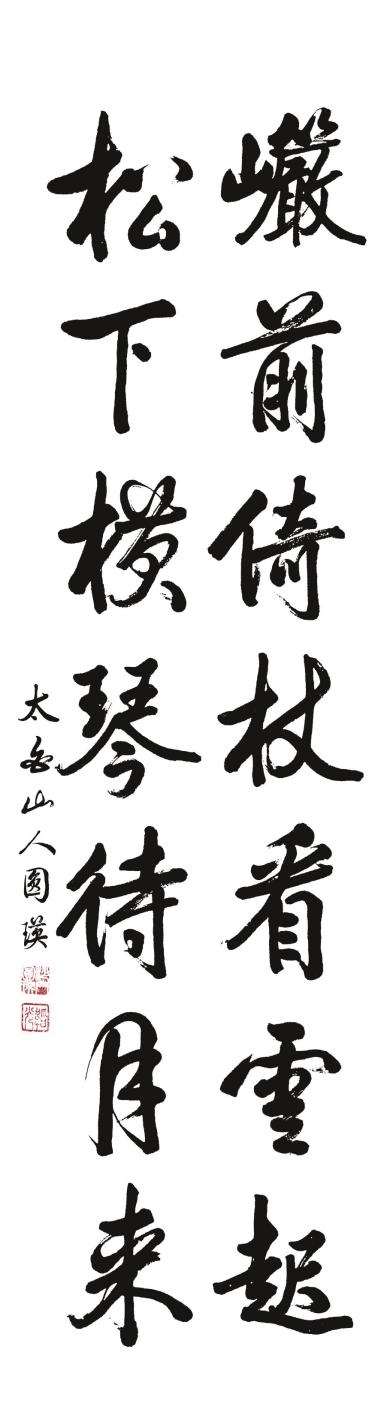 巖前倚杖看雲起
松下横琴待月来
太白山人圆瑛